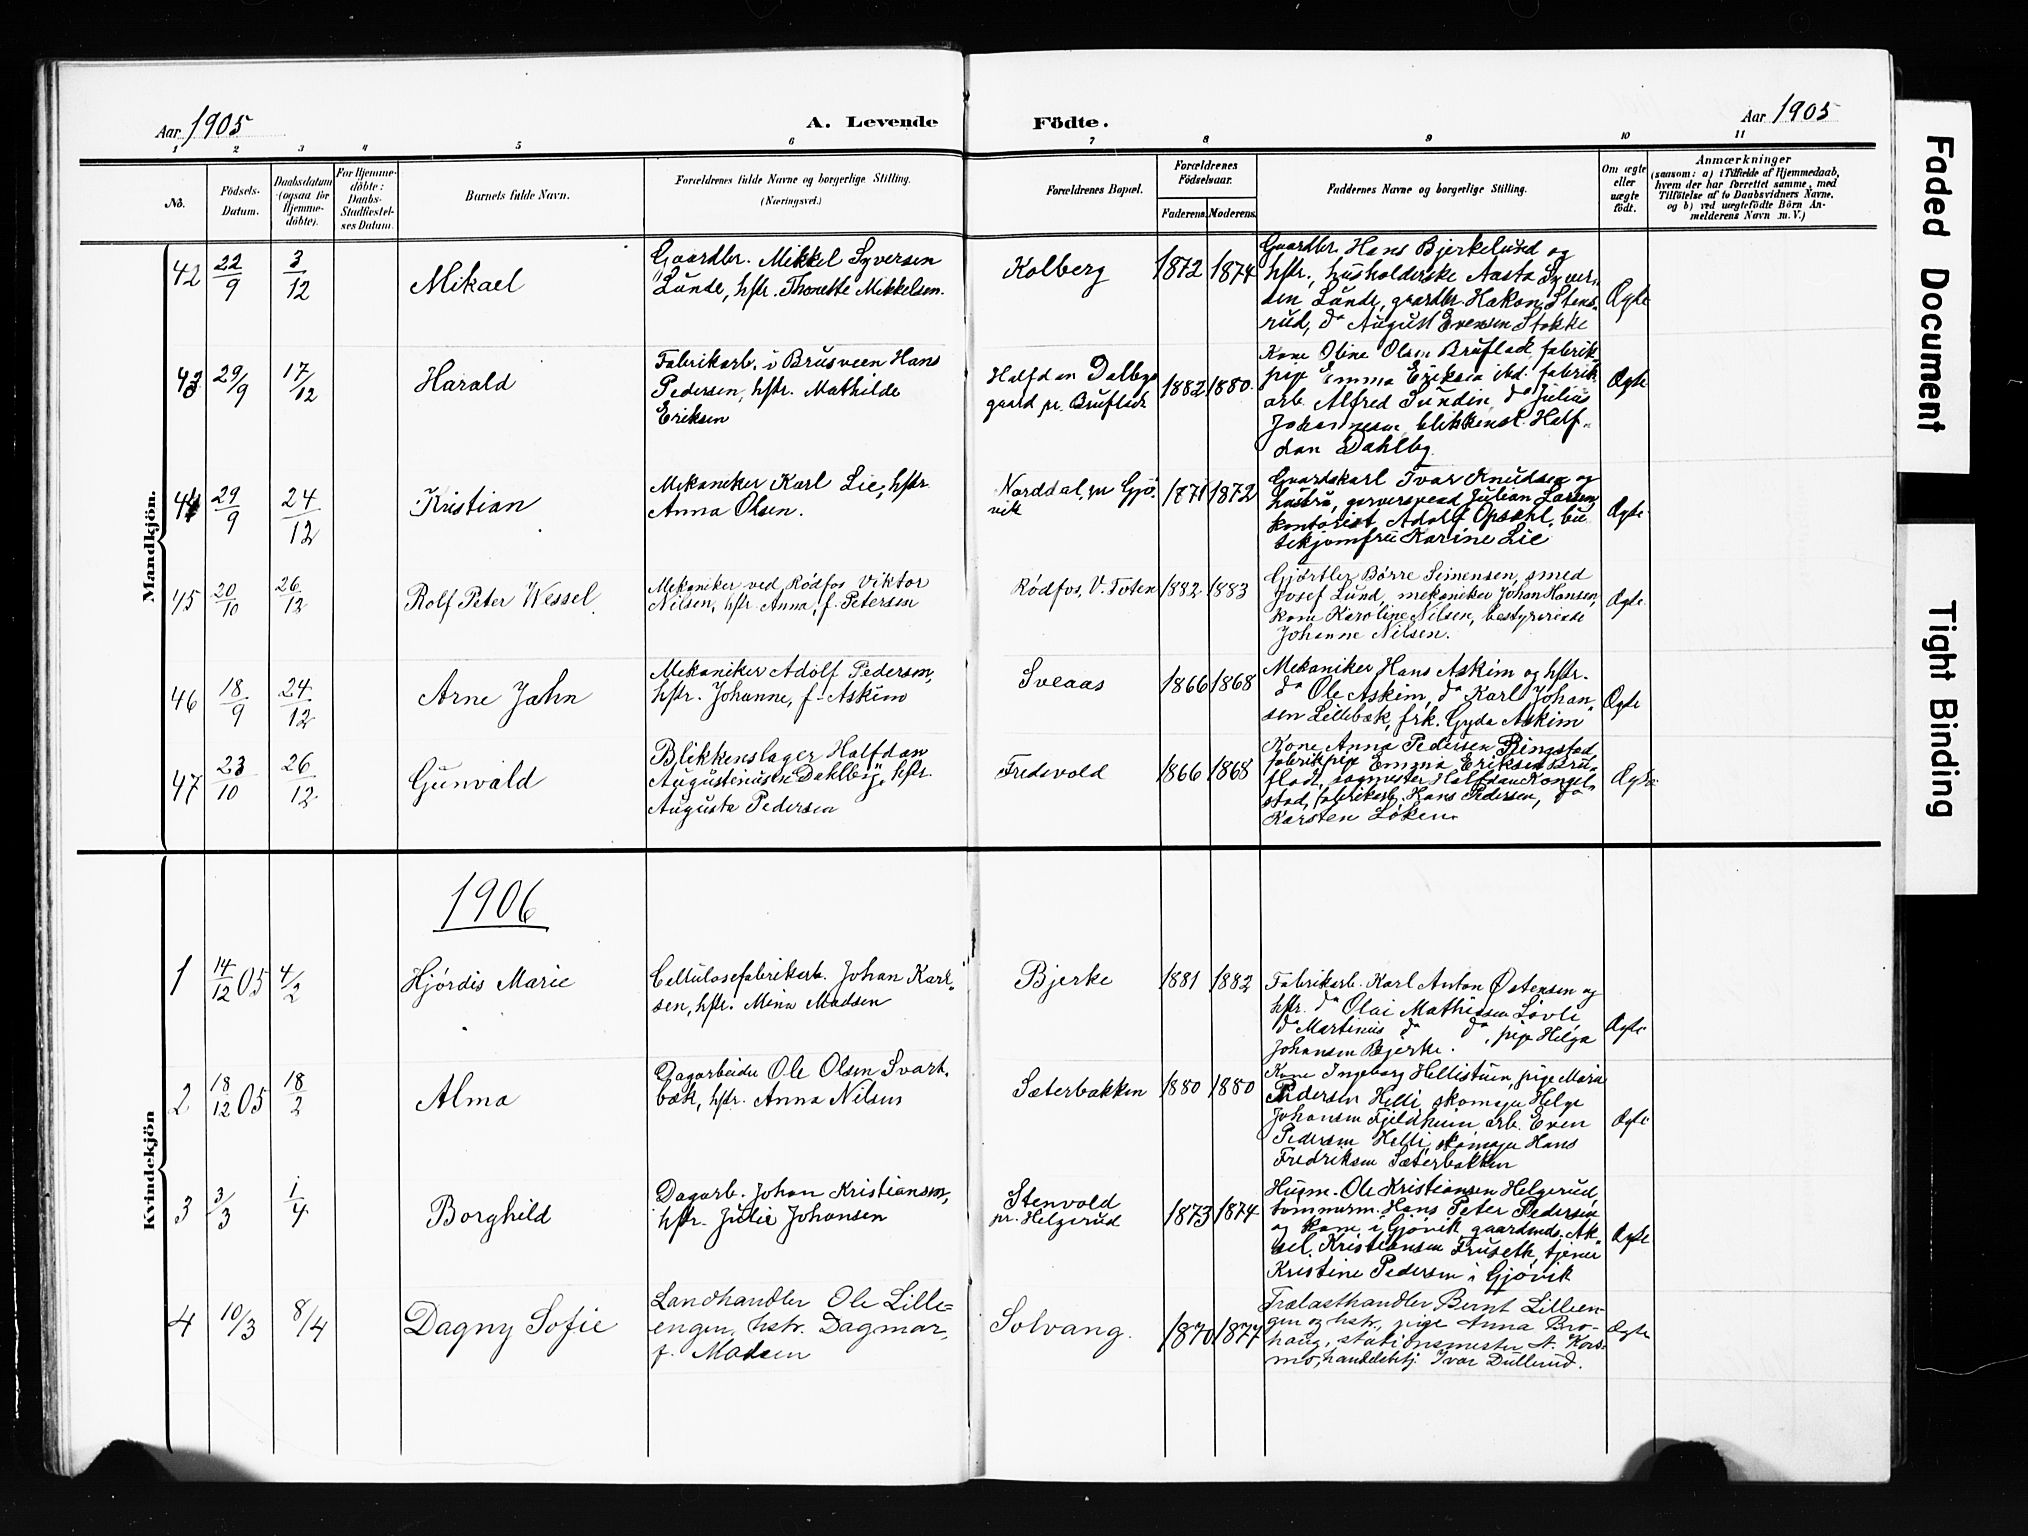 Aar 1905
A. Levende
Födte.
Aar 1905
1 2 3 4 5 6 7 8 9 10 11
No.
Födsels-
Datum.
Daabsdatum
(ogsaa for
Hjemme-
döbte).
For Hjemme-
döbte:
Daabs-
Stadfæstel-
ses Datum.
Barnets fulde Navn.
Forældrenes fulde Navne og borgerlige Stilling.
(Næringsvei.)
Forældrenes Bopæl.
Forældrenes
Födselsaar.
Faderens. Moderens.
Faddernes Navne og borgerlige Stilling.
Om ægte
eller
uægte
födt.
Anmærkninger
(saasom: a) i Tilfælde af Hjemmedaab,
hvem der har forrettet samme, med
Tilföielse af to Daabsvidners Navne,
og b) ved uægtefödte Börn An-
melderens Navn m. V.)
Mandkjön.
42 22/9 3/12 Mikael
Gaardbr. Mikkel Syversen
Lunde, hstr. Thonette Mikkelsen.
Kolberg 1872 1874
Gaardbr. Hans Bjerkelund og
hstr., husholderske Aasta Syver-
sen Lunde, gaardbr. Hakon Stens-
rud, do August Evensen Stokke
Ægte
43 29/9 17/12 Harald
Fabrikarb. i Brusveen Hans
Pedersen, hstr. Mathilde
Eriksen
Halfdan Dalbys
gaard pr. Bruflade
1882 1880
Kone Oline Olsen Bruflade, fabrik-
pige Emma Eriksen ibd. fabrik-
arb. Alfred Sunden, do Julius
Johannesen, blikkensl. Half-
dan Dahlby.
Ægte
44 29/9 24/12 Kristian
Mekaniker Karl Lie, hstr.
Anna Olsen.
Norddal, pr Gjö-
vik
1871 1872
Gaardskarl Ivar Knudsen og
hustru, garversvend Julian Larsen
kontorist Adolf Opsahl, bu-
tikjomfru Karine Lie
Ægte
45 20/10 26/12 Rolf Peter Wessel
Mekaniker ved Rödfos Viktor
Nilsen, hstr. Anna, f. Petersen
Rödfos, V. Toten 1882 1883
Gjörtler Börre Simensen, smed
Josef Lund, mekaniker Johan Hansen,
kone Karoline Nilsen, bestyrerinde
Johanne Nilsen.
Ægte
46 18/9 24/12 Arne Jahn
Mekaniker Adolf Pedersen,
hstr. Johanne, f. Askim
Sveaas 1866 1868
Mekaniker Hans Askim og hstr.
do Ole Askim, do Karl Johan-
sen Lillebæk, frk. Gyda Askim
Ægte
47 23/10 26/12 Gunvald
Blikkenslager Halfdan
Augustinusen Dahlby, hstr.
Augusta Pedersen
Fredevold 1866 1868
Kone Anna Pedersen Ringstad,
fabrikpige Emma Eriksen Bru-
flad, sagmester Halfdan Kongel-
stad, fabrikarb. Hans Pedersen, do
Karsten Löken.
Ægte
1906
Kvindekjön
1 14/12 05 4/2 Hjördis Marie
Cellulosefabrikarb. Johan Karl-
sen, hstr. Mina Madsen
Bjerke 1881 1882
Fabrikarb. Karl Anton Östensen og
hstr. do Olai Mathiesen Lövli
do Martinius do do, pige Helga
Johansen Bjerke.
Ægte
2 18/12 05 18/2 Alma
Dagarbeider Ole Olsen Svart-
bæk, hstr. Anna Nilsen
Sæterbakken 1880 1880
Kone Ingeborg Hellistuen, pige Maria
Pedersen Helli, skomager Helge
Johansen Fjeldheim arb. Even
Pedersen Helli, skomager Hans
Fredriksen Sæterbakken
Ægte
3 3/3 1/4 Borghild
Dagarb. Johan Kristiansen,
hstr. Julie Johansen
Stenvold
pr. Helgerud
1873 1874
Husm. Ole Kristiansen Helgerud,
tömmerm. Hans Peter Pedersen
og kone i Gjövik gaardmds. Ak-
sel Kristiansen Fruseth, tjener
Kristine Pedersen i Gjövik
Ægte
4 10/3 8/4 Dagny Sofie
Landhandler Ole Lille-
engen, hstr. Dagmar,
f. Madsen
Solvang. 1870 1877
Trælasthandler Bernt Lilleen-
gen og hstr., pige Anna Bro-
haug, stationsmester A. Kors-
mo, handelsbtj. Ivar Dullerud.
Ægte
Faded Document
Tight Binding